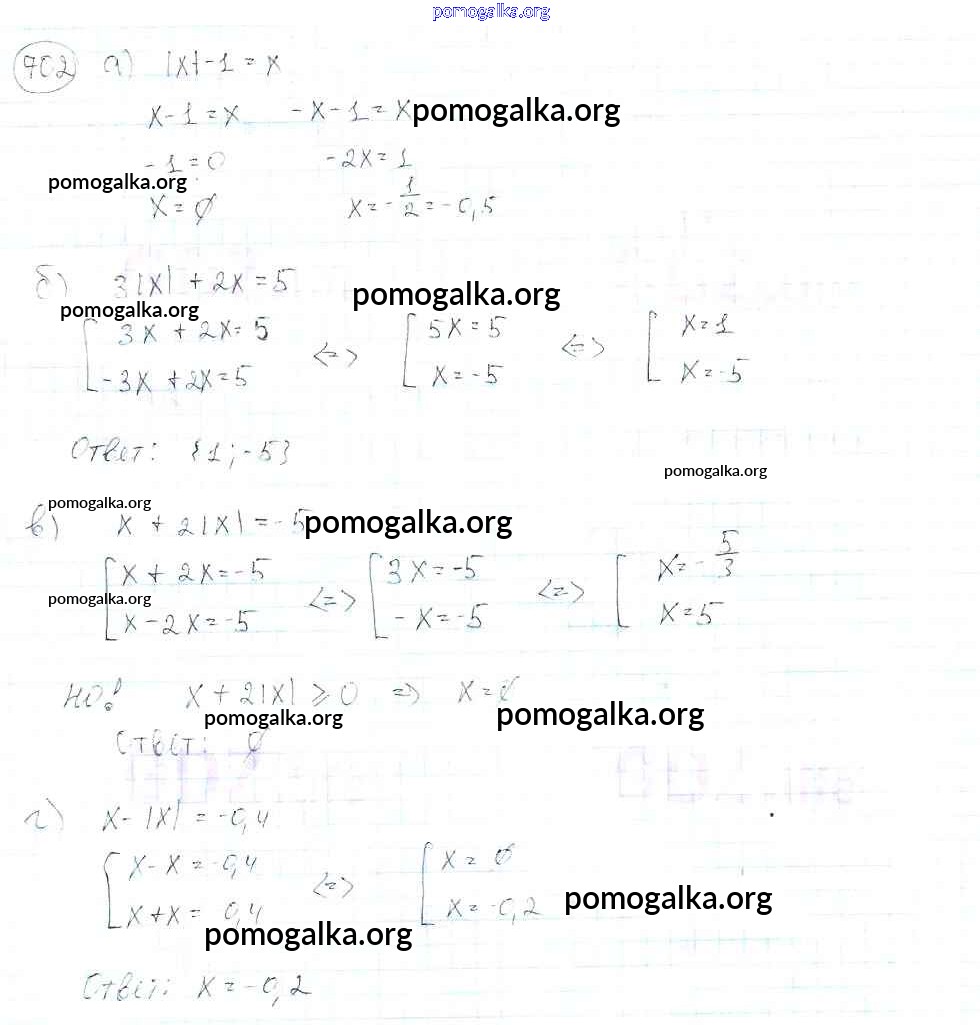 pomogalka.org
702 а) |x|-1 = x
x-1=x -x-1=x pomogalka.org
-1=0 -2x=1
pomogalka.org
x=∅ x=-1/2=-0,5
б) 3|x|+2x=5
pomogalka.org
pomogalka.org
[3x+2x=5 <=> [5x=5 <=> [x=1
-3x+2x=5 x=-5 x=-5
Ответ: {1;-5}
pomogalka.org
pomogalka.org
в) x+2|x|=-5 pomogalka.org
[x+2x=-5 <=> [3x=-5 <=> [x=-5/3
pomogalka.org
x-2x=-5 -x=-5 x=5
НО! x+2|x|≥0 => x=∅
pomogalka.org pomogalka.org
Ответ: ∅
г) x-|x|=-0,4
[x-x=-0,4 <=> [x=∅
x+x= 0,4 x=-0,2 pomogalka.org
pomogalka.org
Ответ: x=-0,2